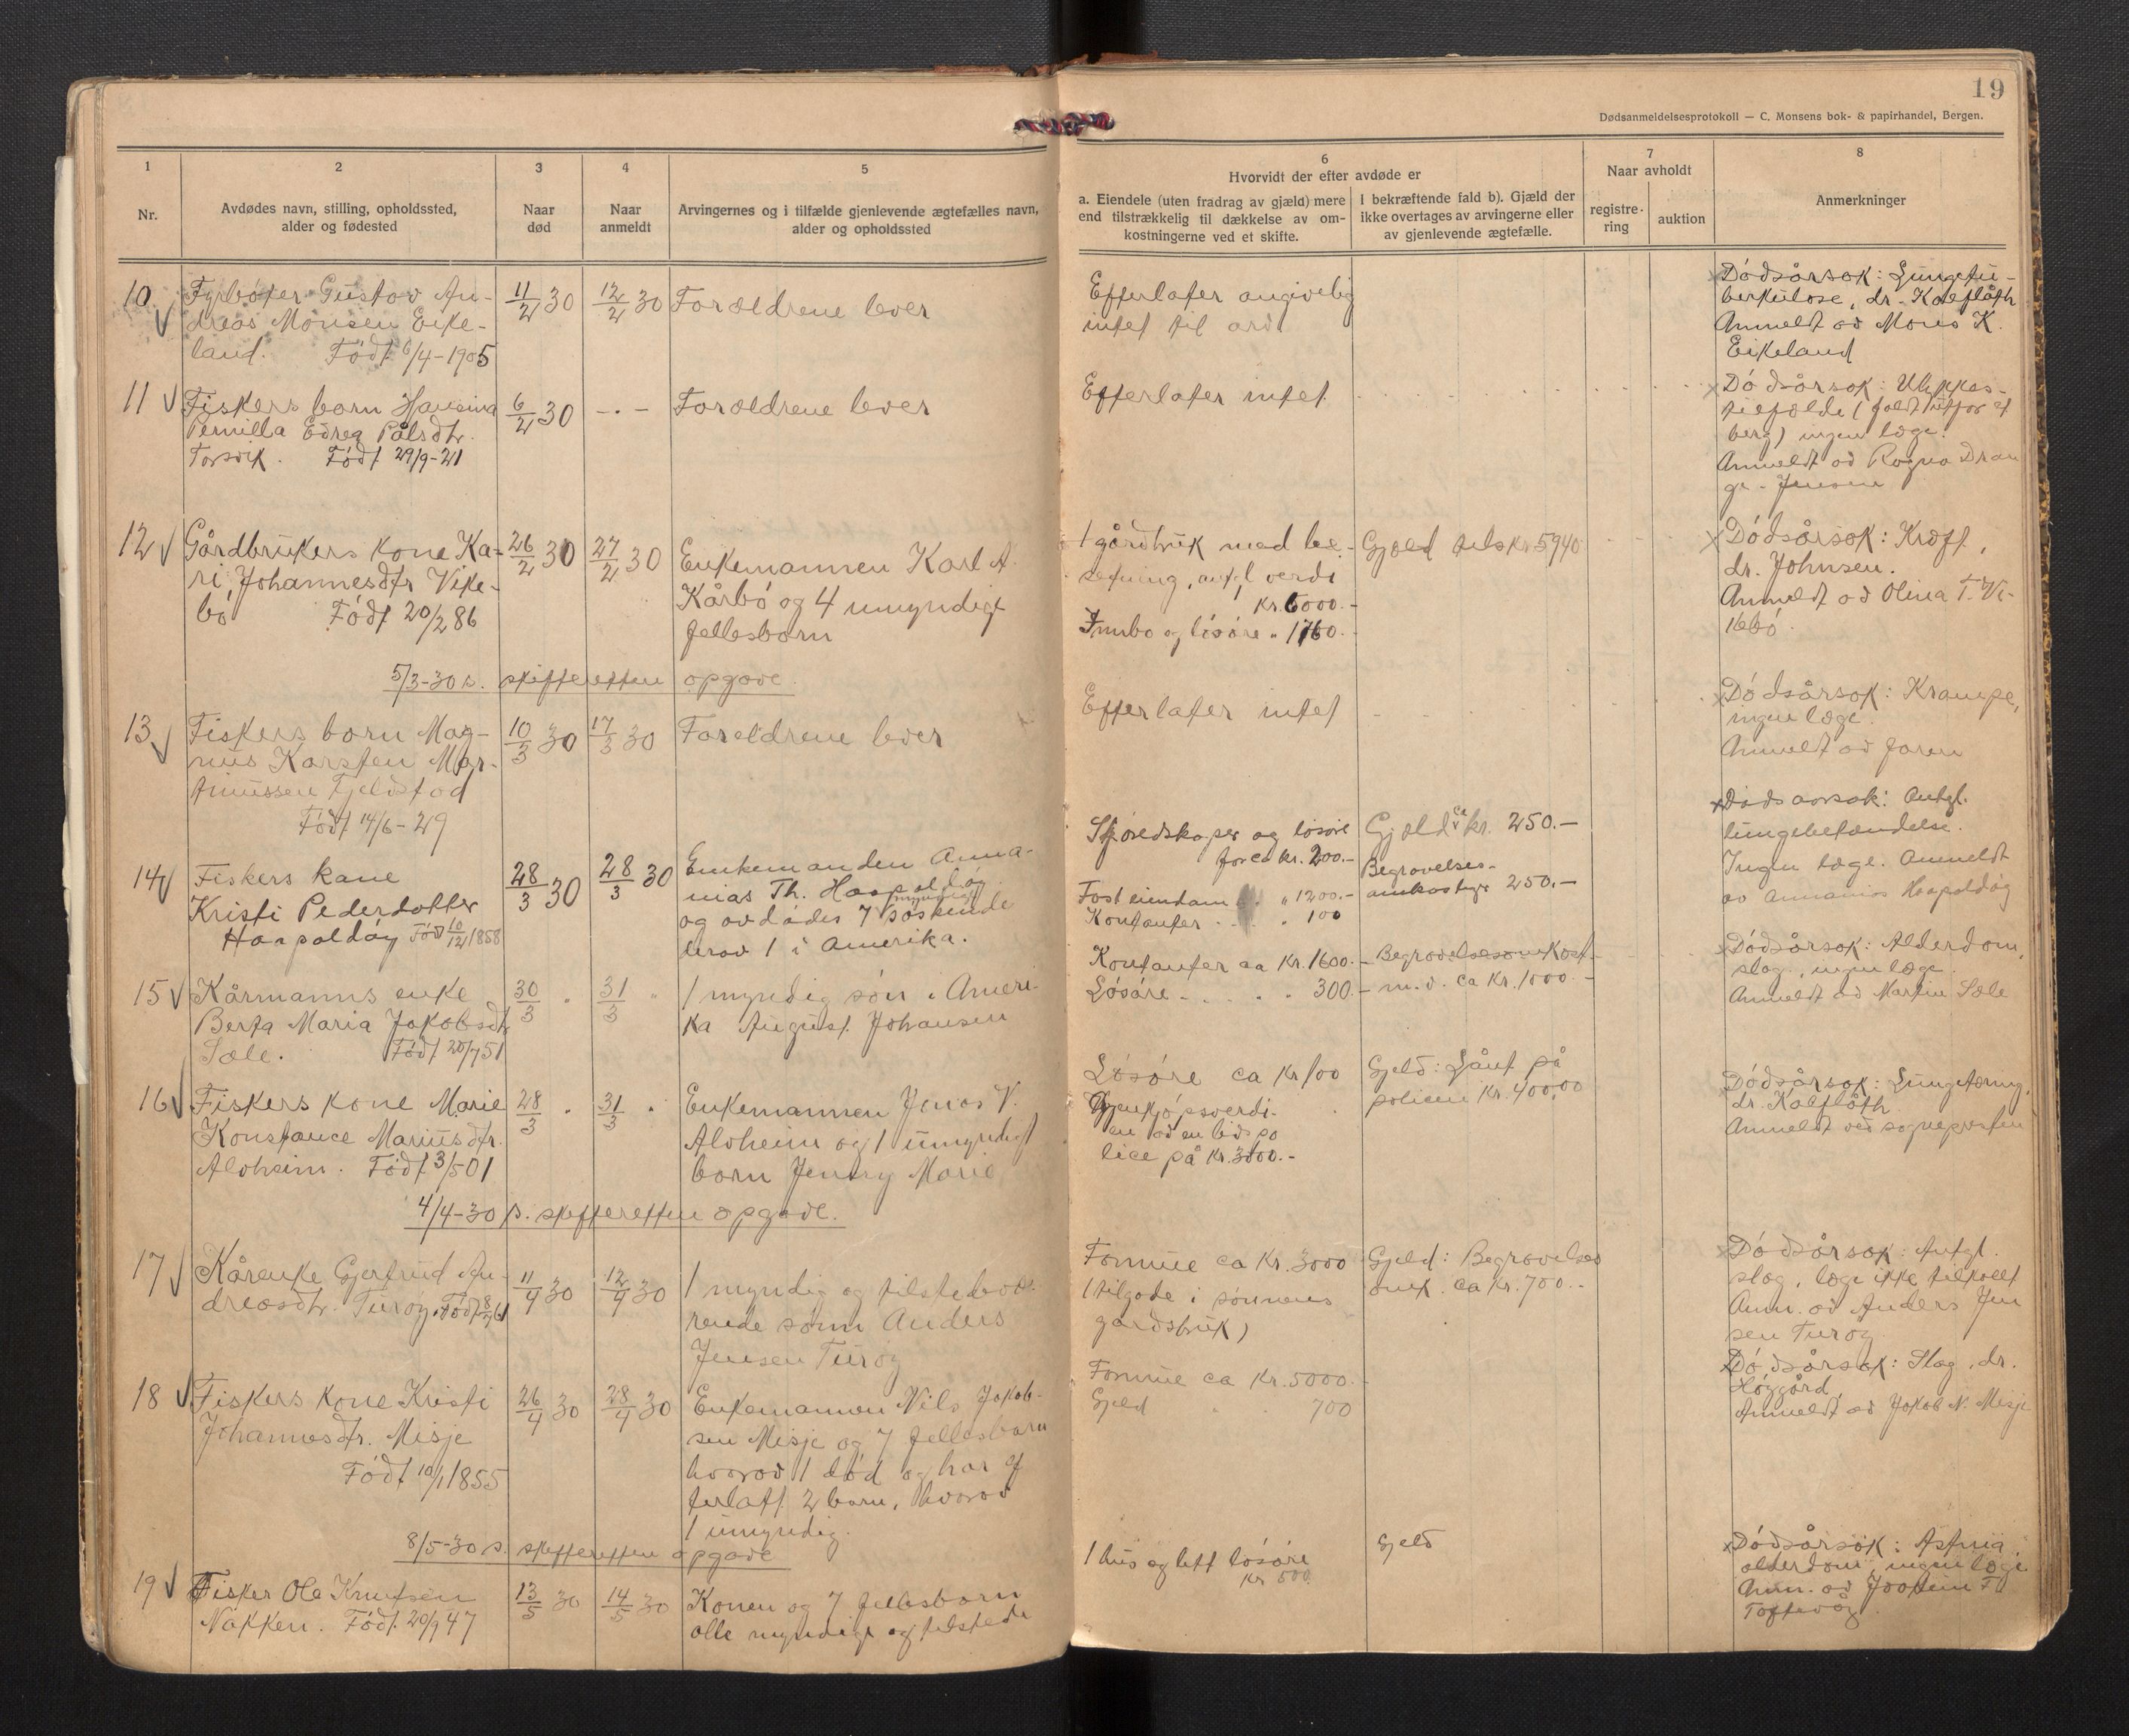 19
Dødsanmeldelsesprotokoll — C. Monsens bok- & papirhandel, Bergen.
1
2
3
4
5
6
7
8
Nr.
Avdødes navn, stilling, opholdssted,
alder og fødested
Naar
død
Naar
anmeldt
Arvingernes og i tilfælde gjenlevende ægtefælles navn,
alder og opholdssted
Hvorvidt der efter avdøde er
a. Eiendele (uten fradrag av gjæld) mere
end tilstrækkelig til dækkelse av om-
kostningerne ved et skifte.
I bekræftende fald b). Gjæld der
ikke overtages av arvingerne eller
av gjenlevende ægtefælle.
Naar avholdt
registre-
ring
auktion
Anmerkninger
10
Fyrbøter Gustav An-
dreas Monsen Eike-
land. Født 6/4-1905
11/2 30
12/2 30
Forældrene lever
Efterlater angivelig
intet til arv
Dødsårsak: Lungetu-
berkulose, dr. Kalfláth
Anmeldt av Mons K.
Eikeland
11
Fiskers barn Hansina
Pernilla Edrea Pålsdtr.
Torsvik. Født 29/9-21
6/2 30
-.-
Forældrene lever
Efterlater intet
Dødsårsak: Ulykkes-
tilfælde (faldt utfor et
berg) ingen læge.
Anmeldt av Ragna Dran
ge-Jensen
12
Gårdbrukers kone Ka-
ri Johannesdtr Vike-
bø Født 20/2 86
26/2 30
27/2 30
Enkemannen Karl A.
Kårbø og 4 umyndige
fellesbarn
1 gårdbruk med be-
setning, antgl verdi
kr. 6000.-
Innbo og løsøre " 1760.-
Gjæld tils kr 5940
Dødsårsak: Kræft,
dr. Johnsen.
Anmeldt av Olina T. Vi-
kebø
5/3-30 s. skifteretten opgave.
13
Fiskers barn Mag-
nus Karsten Mar-
tinussen Fjeldstad
Født 14/6-29
10/3 30
17/3 30
Foreldrene lever
Efterlater intet
Dødsårsak: Krampe,
ingen læge.
Anmeldt av faren
14
Fiskers kane
Kristi Pedersdotter
Haapoldøy Født 10/12 1858
28/3 30
28/3 30
Enkemanden Anna-
nias Th. Haapoldøy
og avdødes 7 myndige søskende
herav 1 i Amerika.
Sjøredskaper og løsøre
for ca kr. 200.-
Fast eiendam " 1200.-
Kontanter . . . 100
Gjæld ca kr. 250.-
Begravelses-
amkostngr 250.-
Dødsaarsak: Antgl.
lungebetændelse.
Ingen læge. Anmeldt
av Annanias Haapoldøy
15
Kårmanns enke
Berta Maria Jakobsdtr
Sæle. Født 20/7 51
30/3 "
31/3 "
1 myndig søn i Ameri-
ka August Johansen
Kontanter ca kr. 1600.-
Løsøre - . . . . 300.-
Begravelsesomkost.
m.v. ca kr. 1000 -
Dødsårsak: Alderdom,
slag, ingen læge.
Anmeldt av Martin Sæle
16
Fiskers kone Marie
Konstance Mariusdtr.
Alvheim. Født 3/5 01
28/3 "
31/3 "
Enkemannen Jonas V.
Alvheim og 1 umyndigt
barn Jenny Marie
Løsøre ca kr 100
Gjenkjøpsverdi-
en av en livspo
lice på kr. 3000.-
Gjeld: Lånt på
policen kr. 400,00
Dødsårsak: Lungetæring,
dr. Kalfláth
Anmeldt ved sognepresten
4/4-30 s. skifteretten opgave.
17
Kårenke Gjertrud An-
dreasdtr. Turøy. Født 61
11/4 30
12/4 30
1 myndig og tilstedevæ-
rende sønn Anders
Jensen Turøy
Formue ca kr. 3000
(tilgode i sønnens
gardsbruk)
Gjeld: Begravelses
omk. ca kr. 700.-
Dødsårsak: Antgl.
slag, læge ikke tilkallt
Anm. av Anders Jen
sen Turøy
18
Fiskers kone Kristi
Johannesdtr. Misje
Født 10/1 1855
26/4 30
28/4 30
Enkemannen Nils Jakob-
sen Misje og 7 fellesbarn
hvorav 1 død og har ef
terlatt 2 barn, hvorav
1 umyndig.
Formue ca kr. 5000.-
Gjeld " " 700
Dødsårsak: Slag, dr.
Høggård,
Anmeldt av Jakob N. Misje
8/5-30 s. skifteretten opgave
19
Fisker Ole Knutsen
Nakken. Født 20/9 47
13/5 30
14/5 30
Konen og 7 fellesbarn
alle myndige og tilstede
1 hus og litt løsøre
kr 500
Gjeld
Dødsårsak: Astma,
alderdom, ingen læge
Anm. av Joakim T
Toftevåg